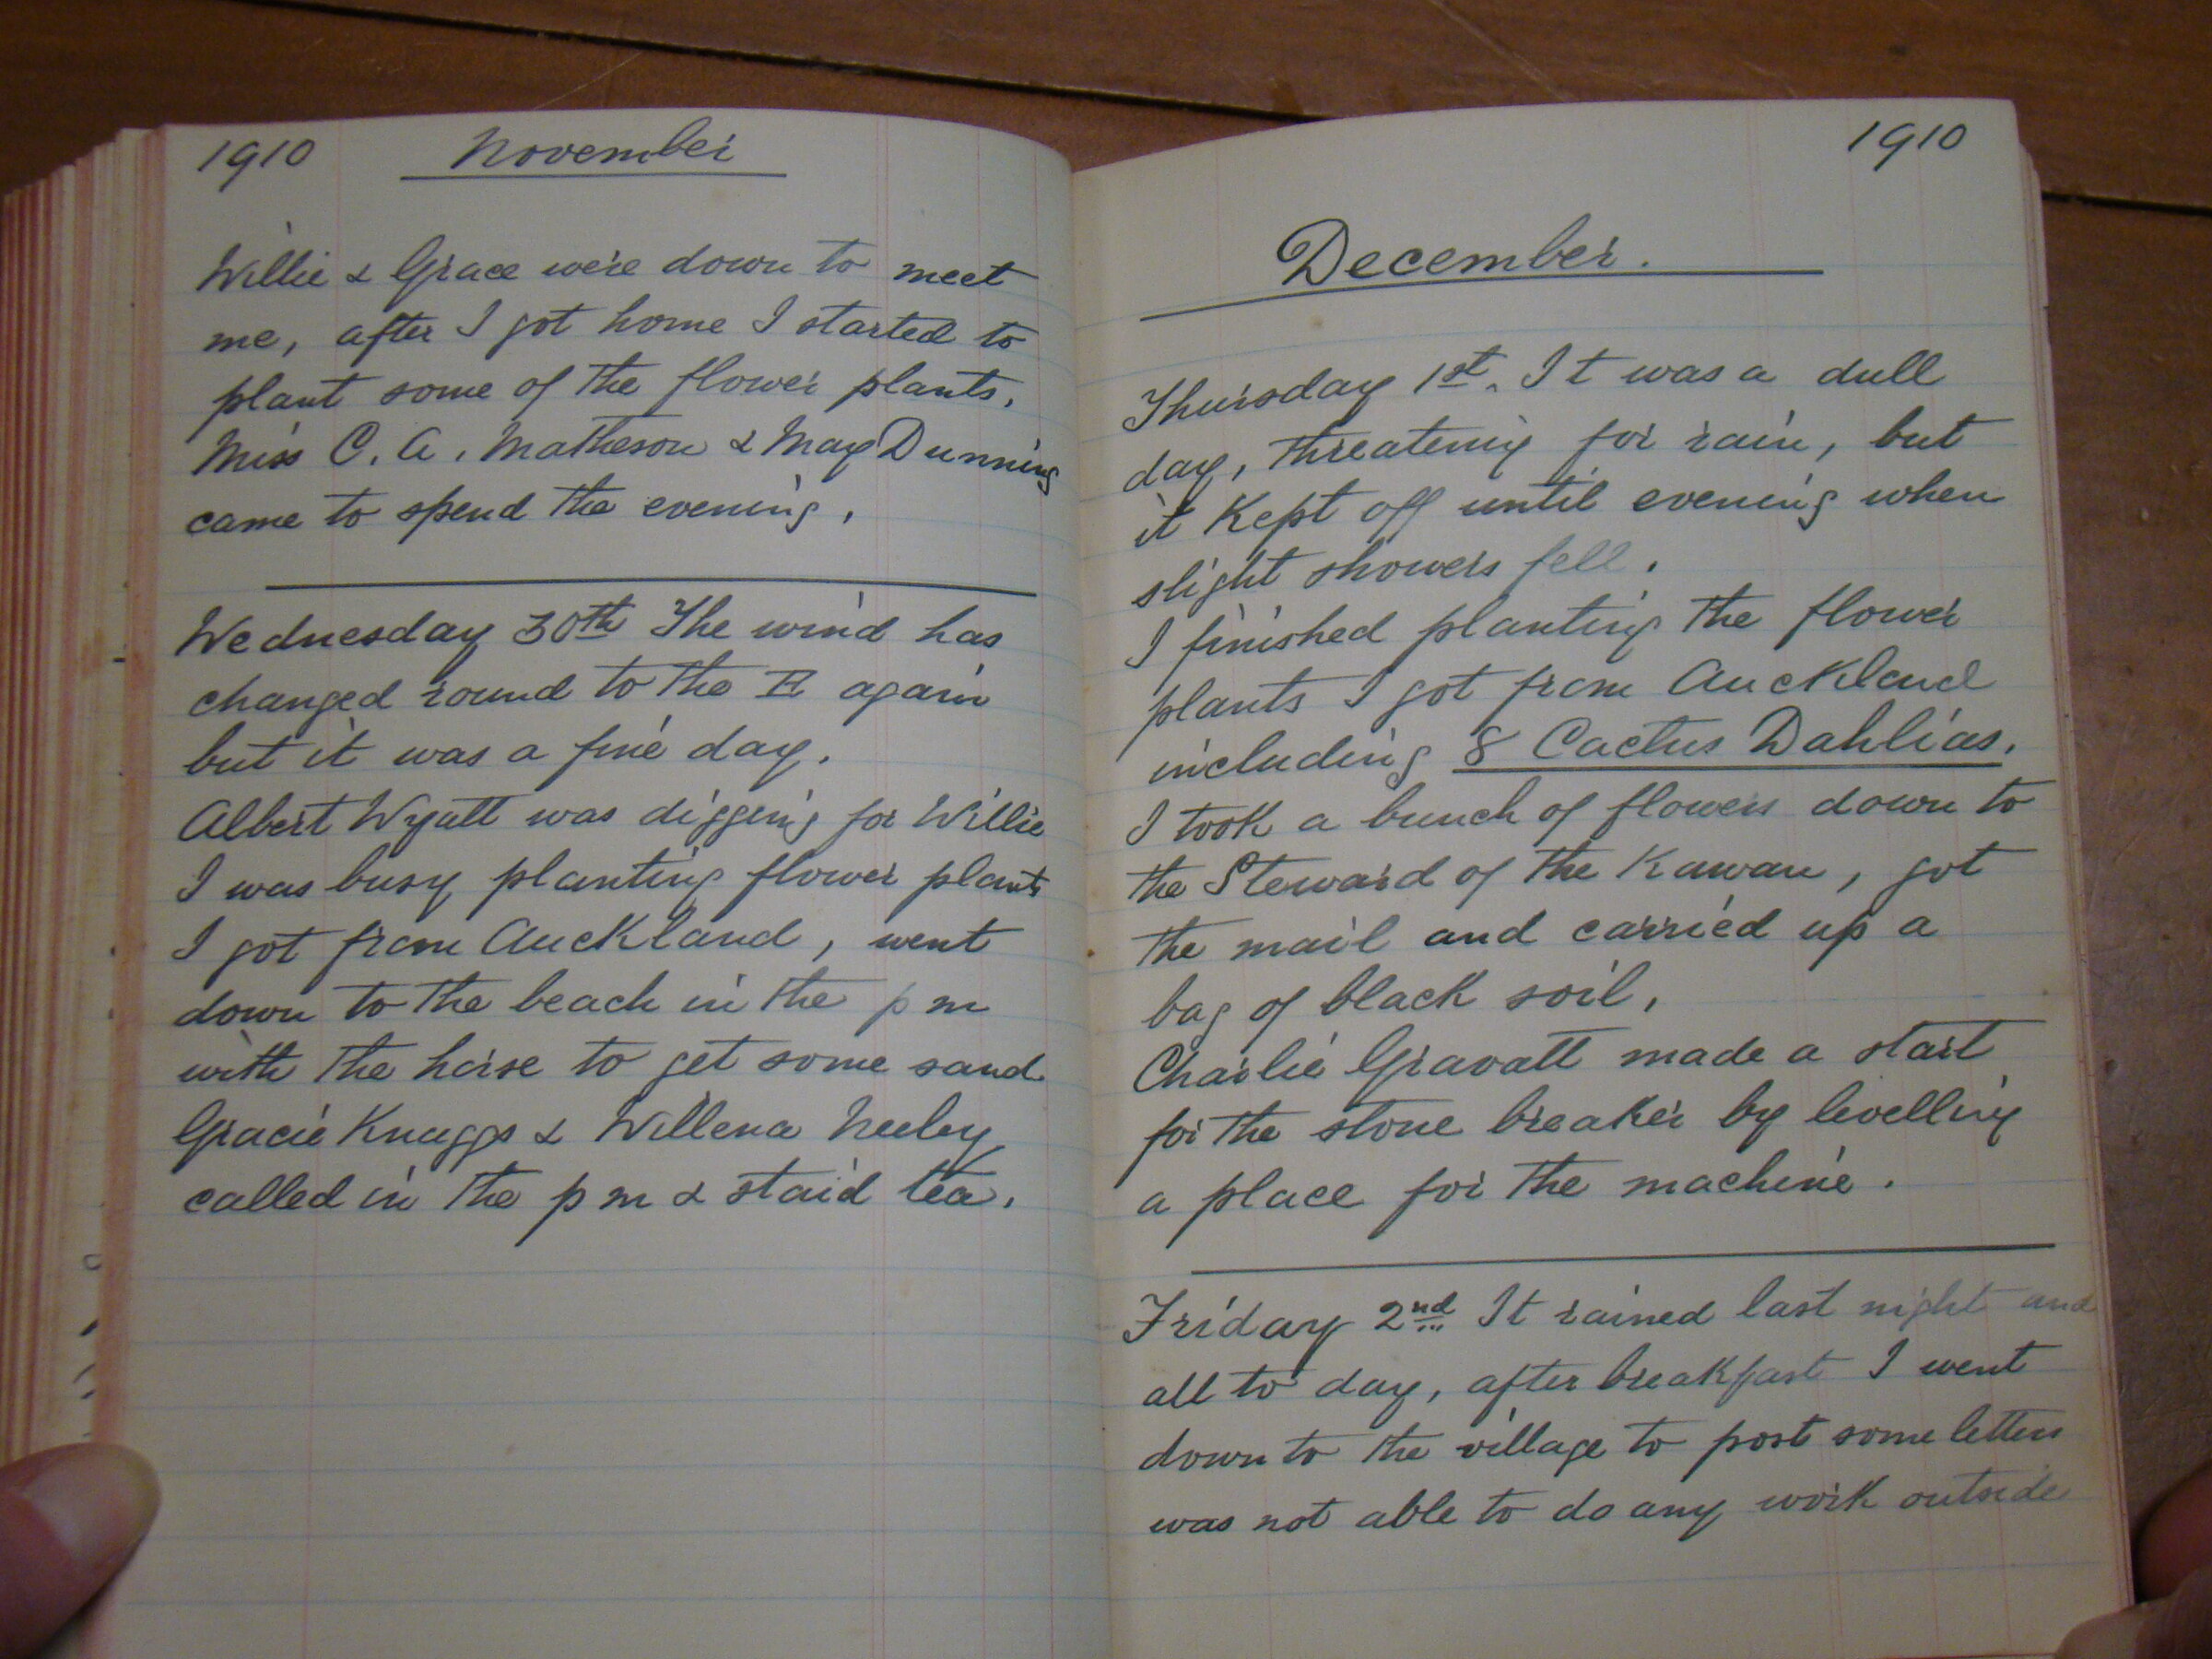 1910 November
Willie & Grace were down to meet
me, after I got home I started to
plant some of the flower plants.
Miss C. A. Matheson & May Dunning
came to spend the evening.
Wednesday 30th The wind has
changed round to the E again
but it was a fine day.
Albert Wyatt was digging for Willie
I was busy planting flower plants
I got from Auckland, went
down to the beach in the p m
with the horse to get some sand.
Gracie Knaggs & Willena Neeley
called in the p m & staid tea.
1910
December.
Thursday 1st. It was a dull
day, threatenig for rain, but
it kept off until evening when
slight showers fell.
I finished planting the flower
plants I got from Auckland
including 8 Cactus Dahlias.
I took a bunch of flowers down to
the Steward of the Kawau, got
the mail and carried up a
bag of black soil.
Charlie Gravatt made a start
for the stone breaker by levelling
a place for the machine.
Friday 2nd It rained last night and
all to day, after breakfast I went
down to the village to post some letters
was not able to do any work outside